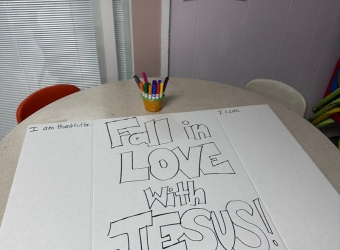 I am thankful for
I can
Fall in
LOVE
with
JESUS!